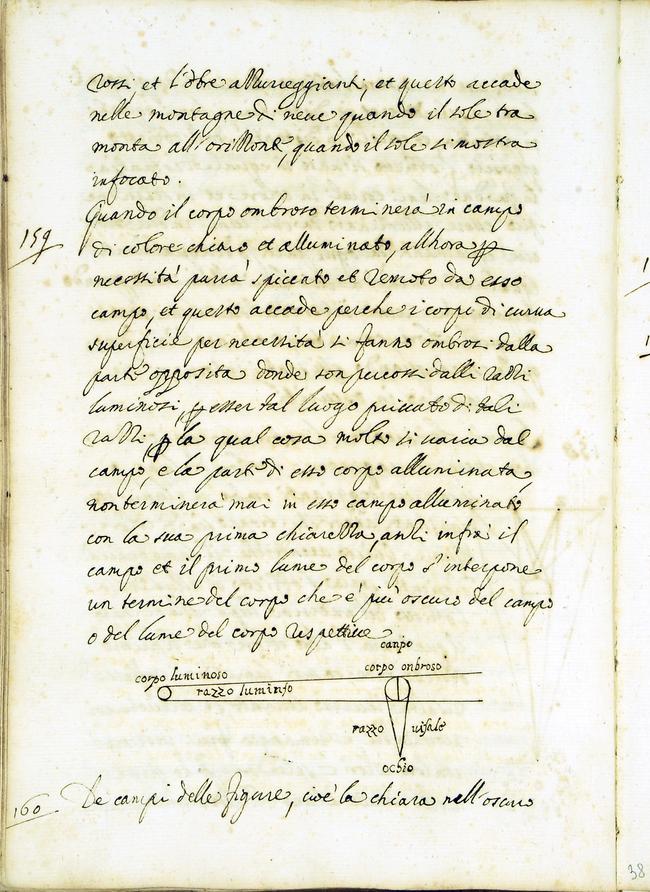 rossi et l'õbre azzurreggianti, et questo accade
nelle montagne di neve quando il sole tra
monta all'orizzonte, quando il sole si mostra
infocato.
159
Quando il corpo ombroso terminerà in campo
di colore chiaro et alluminato, allhora ꝑ
necessità parrà spiccato et remoto da esso
campo, et questo accade perche i corpi di curva
superficie per necessità si fanno ombrosi dalla
parte opposita donde son percossi dalli razzi
luminosi, ꝑ esser tal luogo privato di tali
razzi, ꝑ la qual cosa molto si varia dal
campo, e la parte di esso corpo alluminata,
non terminerà mai in esso campo alluminato
con la sua prima chiarezza, anzi infrà il
campo et il primo lume del corpo s'interpone
un termine del corpo che è più oscuro del campo
o del lume del corpo respettive
canpo
corpo luminoso corpo onbroso
razzo luminoso
razzo visale
ochio
160 De campi delle figure, cioè la chiara nell'oscuro
38